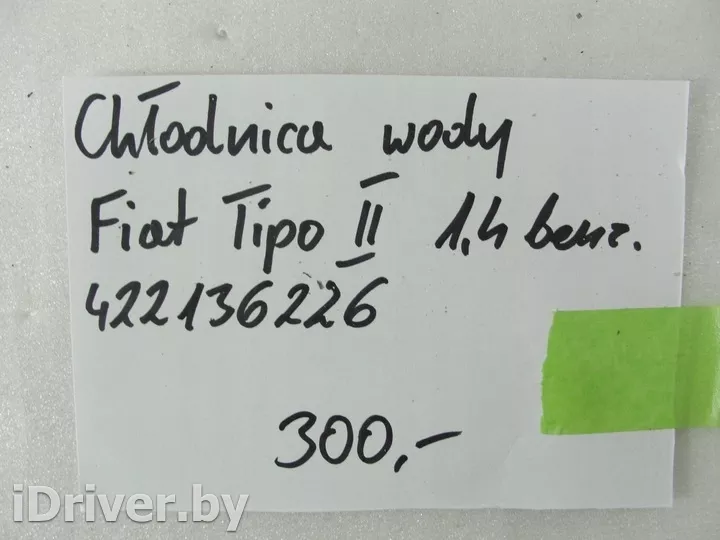 Chłodnica wody
Fiat Tipo II 1,4 benz.
422136226
300,-
iDriver.by